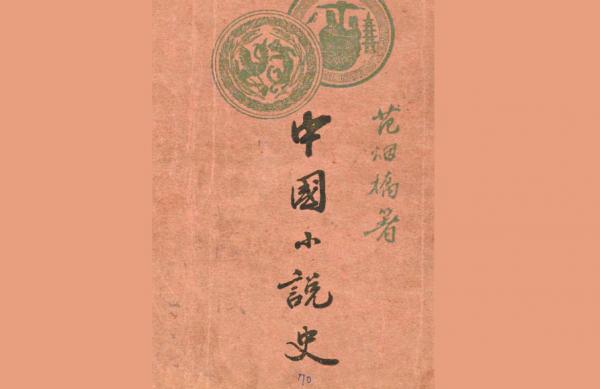 范烟橋著
中國小說史
70